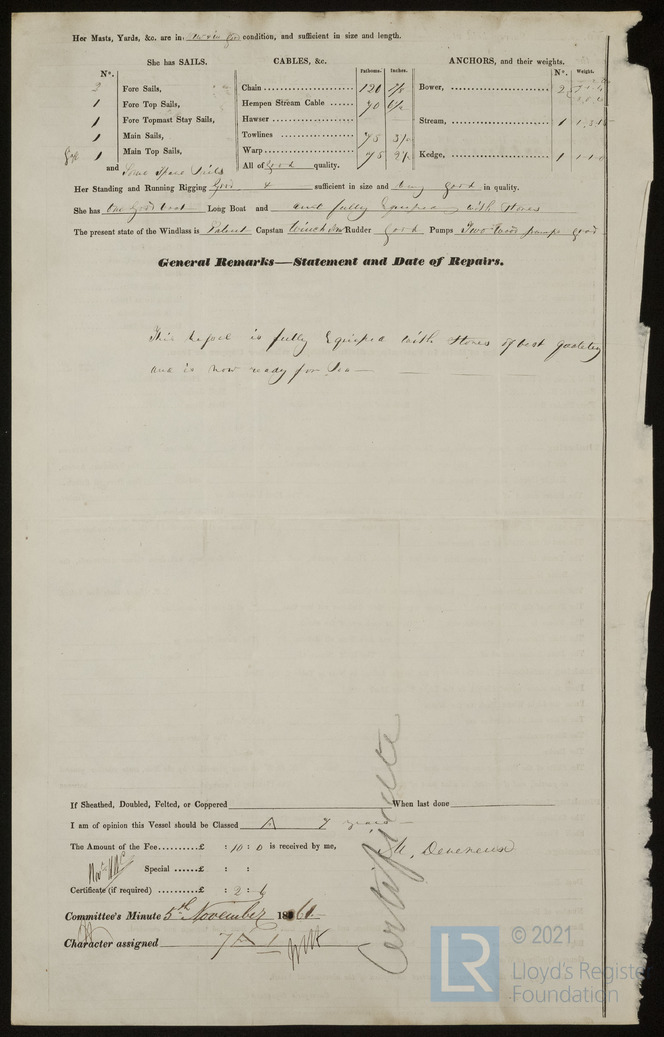 Her Masts, Yards, &c. are in condition, and sufficient in size and length.
She has SAILS. CABLES, &c. ANCHORS, and their weights.
Nº. Fathoms. Inches. Nº. Weight.
2 Fore Sails, Chain 120 Bower, 2
1 Fore Top Sails, Hempen Stream Cable 70
1 Fore Topmast Stay Sails, Hawser Stream, 1
1 Main Sails, Towlines 75
Gaff 1 Main Top Sails, Warp 75 Kedge, 1 1-1-0
and Some Spare Sails All of good quality.
Her Standing and Running Rigging Good & sufficient in size and very good in quality.
She has one good boat Long Boat and and fully Equiped with Stores
The present state of the Windlass is Patent Capstan Winch Rudder good Pumps Two pumps good
General Remarks—Statement and Date of Repairs.
This Vessel is fully Equiped with Stores of best quality
and is now ready for Sea
If Sheathed, Doubled, Felted, or Coppered When last done
I am of opinion this Vessel should be Classed A 7 years
The Amount of the Fee.........£ : 10 : 0 is received by me,
M. Devereux
Special ......£ : :
Certificate (if required) .........£ : 2 : 6
Committee's Minute 5th November 1861
Character assigned 7 A 1
Certificate
LR
© 2021
Lloyd's Register
Foundation